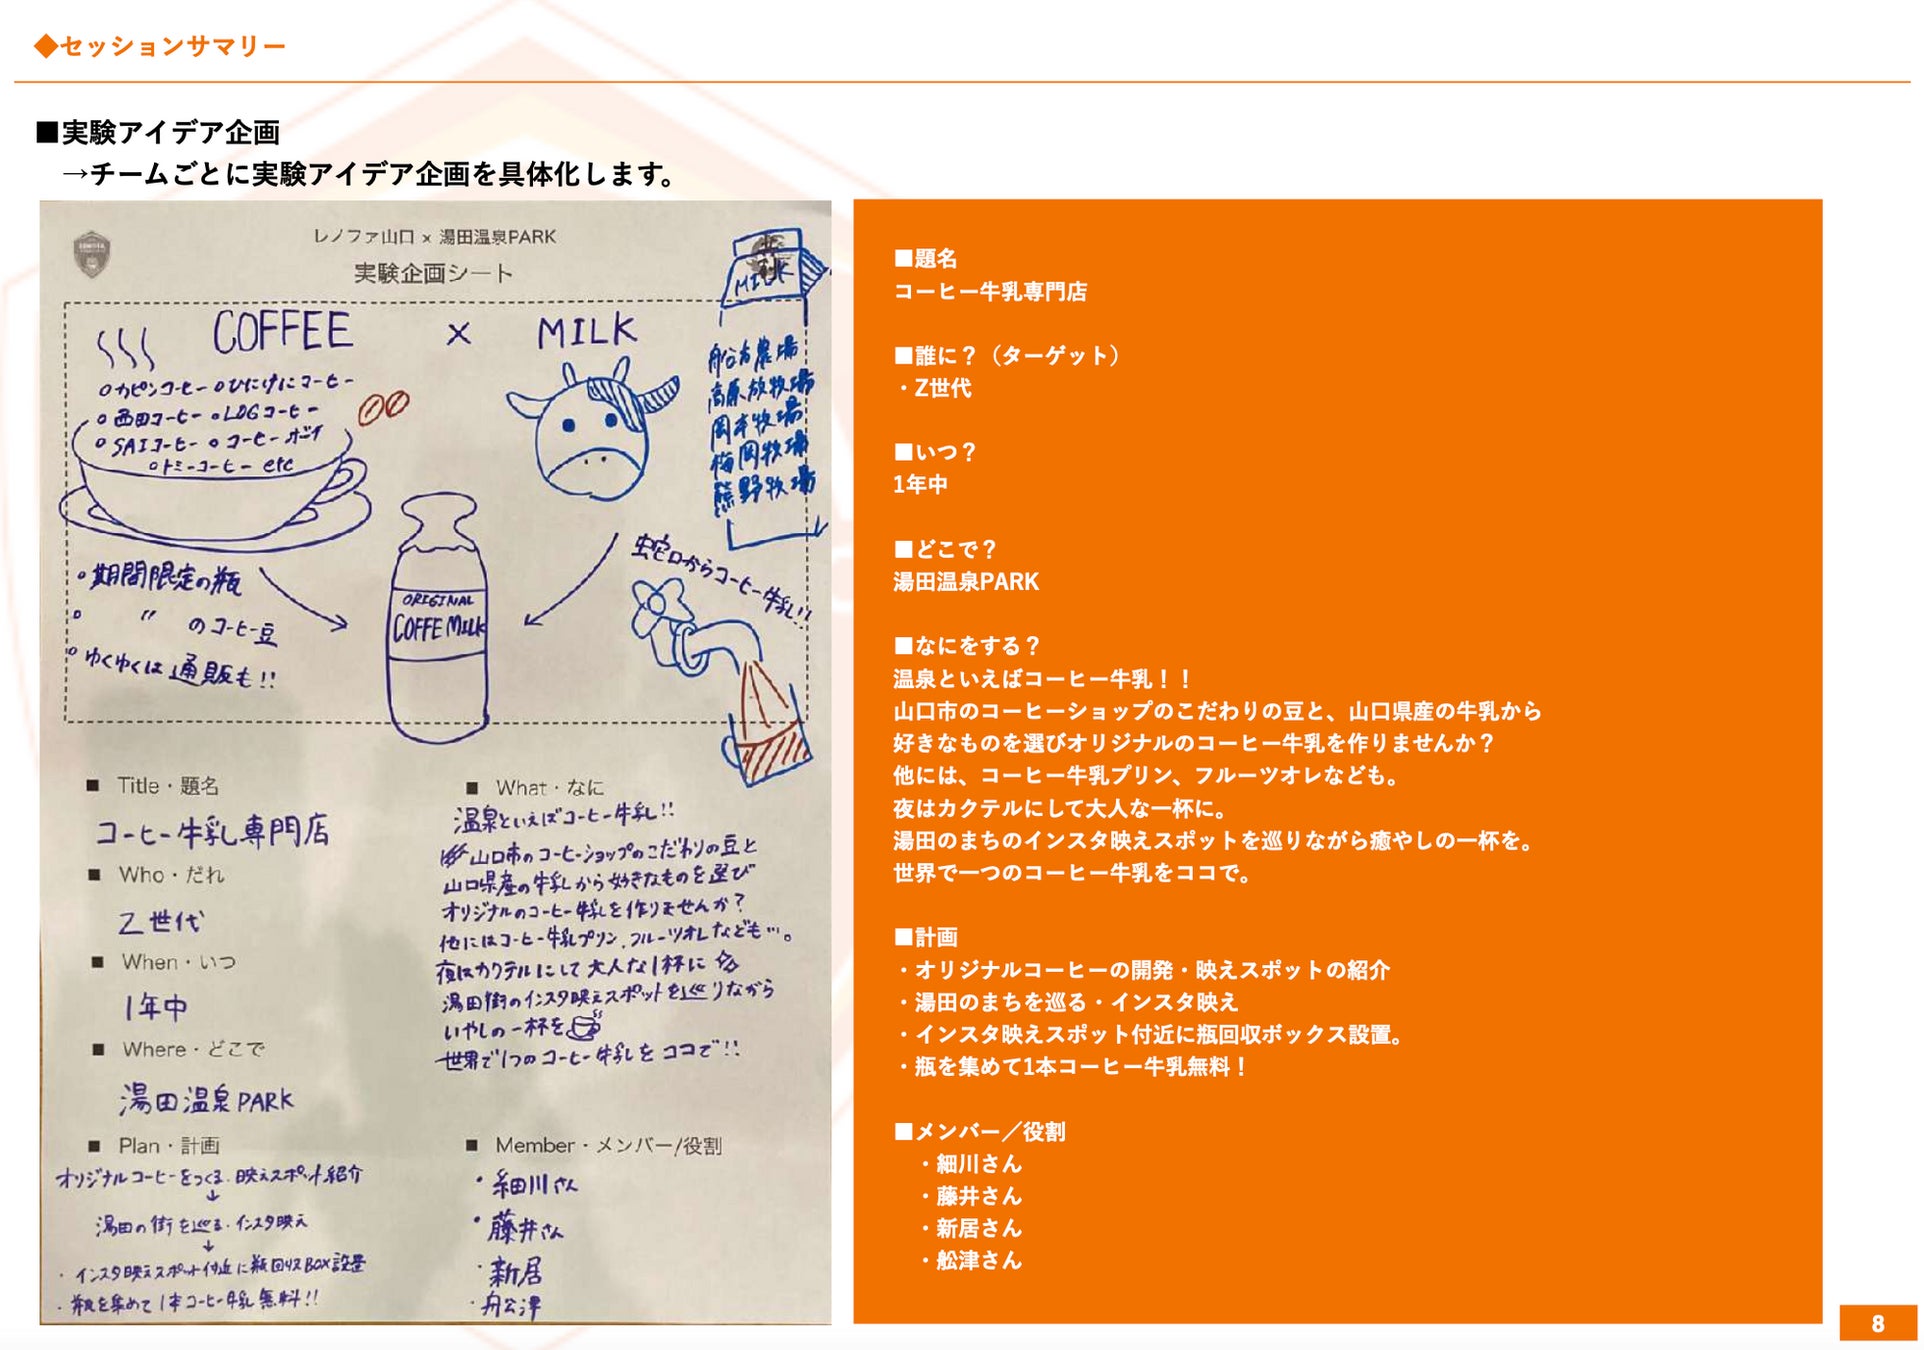 ◆セッションサマリー
■実験アイデア企画
→チームごとに実験アイデア企画を具体化します。
レノファ山口 x 湯田温泉PARK
実験企画シート
COFFEE × MILK
MILK
カピンコーヒー
○西田コーヒー ○LDGコーヒー
○SAIコーヒー ○コーヒーボーイ
○トミーコーヒー etc
船方農場
高原放牧場
岡本牧場
梅岡牧場
熊野牧場
○期間限定の瓶
○ 〃 のコーヒー豆
○ゆくゆくは通販も!!
ORIGINAL
COFFE MILK
蛇口からコーヒー牛乳!!
■ Title・題名
コーヒー牛乳専門店
■ Who・だれ
Z世代
■ When・いつ
1年中
■ Where・どこで
湯田温泉PARK
■ Plan・計画
オリジナルコーヒーをつくる・映えスポット紹介
↓
湯田の街を巡る・インスタ映え
↓
・インスタ映えスポット付近に瓶回収BOX設置
・瓶を集めて1本コーヒー牛乳無料!!
■ What・なに
温泉といえばコーヒー牛乳!!
山口市のコーヒーショップのこだわりの豆と
山口県産の牛乳から好きなものを選び
オリジナルのコーヒー牛乳を作りませんか?
他にはコーヒー牛乳プリン、フルーツオレなども…。
夜はカクテルにして大人な1杯に☆
湯田街のインスタ映えスポットを巡りながら
いやしの一杯を
世界で1つのコーヒー牛乳をココで!!
■ Member・メンバー/役割
・細川さん
・藤井さん
・新居
・舩津
■題名
コーヒー牛乳専門店
■誰に？（ターゲット）
・Z世代
■いつ？
1年中
■どこで？
湯田温泉PARK
■なにをする？
温泉といえばコーヒー牛乳！！
山口市のコーヒーショップのこだわりの豆と、山口県産の牛乳から
好きなものを選びオリジナルのコーヒー牛乳を作りませんか？
他には、コーヒー牛乳プリン、フルーツオレなども。
夜はカクテルにして大人な一杯に。
湯田のまちのインスタ映えスポットを巡りながら癒やしの一杯を。
世界で一つのコーヒー牛乳をココで。
■計画
・オリジナルコーヒーの開発・映えスポットの紹介
・湯田のまちを巡る・インスタ映え
・インスタ映えスポット付近に瓶回収ボックス設置。
・瓶を集めて1本コーヒー牛乳無料！
■メンバー／役割
・細川さん
・藤井さん
・新居さん
・舩津さん
8